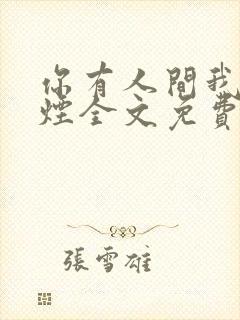 你有人間我
煙全文免費
張雪雄